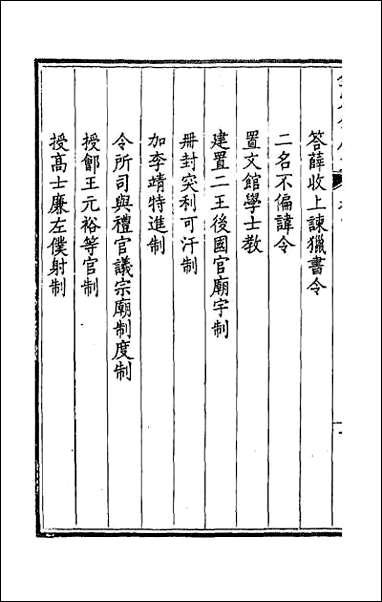 答薛收上諫獵書令
二名不偏諱令
置文館學士教
建置二王後國官廟宇制
冊封突利可汗制
加李靖特進制
令所司與禮官議宗廟制度制
授鄫王元裕等官制
授高士廉左僕射制